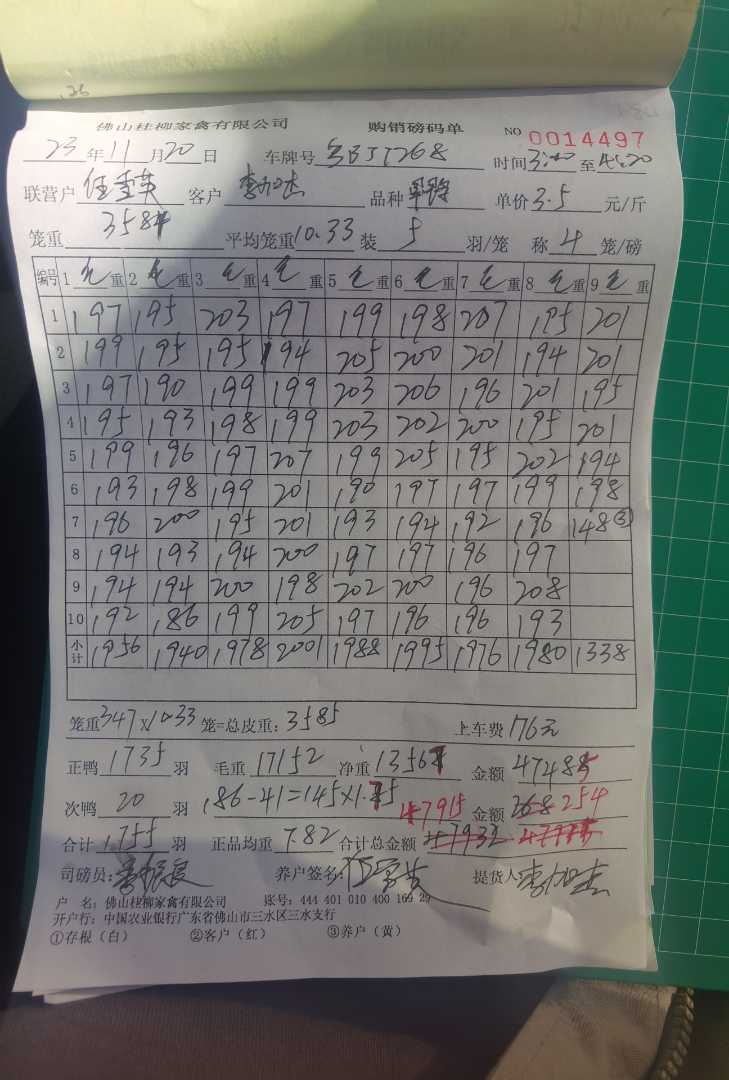 佛山桂柳家禽有限公司 购销磅码单 NO 0014497
23 年 11 月 20 日 车牌号 时间 3:40 至 4:20
联营户 客户 李加杰 品种 单价 3.5 元/斤
笼重 平均笼重 10.33 装 5 羽/笼 称 4 笼/磅
编号 1 毛 重 2 毛 重 3 毛 重 4 毛 重 5 毛 重 6 毛 重 7 毛 重 8 毛 重 9 毛 重
1 197 195 203 197 199 198 207 195 201
2 199 195 195 194 205 200 201 194 201
3 197 190 199 199 203 206 196 201 195
4 195 193 198 199 203 202 200 195 201
5 199 196 197 207 199 205 195 202 194
6 193 198 199 201 190 197 197 199 198
7 196 200 195 201 193 194 192 196 148③
8 194 193 194 200 197 197 196 197
9 194 194 200 198 202 200 196 208
10 192 186 199 205 197 196 196 193
小计 1956 1940 1978 2001 1988 1995 1976 1980 1338
笼重 347×10.33 笼=总皮重: 3585 上车费 176元
正鸭 1735 羽 毛重 17152 净重 13567 金额 47485
次鸭 20 羽 186-41=145×1.75 47915 金额 268 254
合计 1755 羽 正品均重 7.82 合计总金额 47932
司磅员: 养户签名: 提货人 李加杰
户 名: 佛山桂柳家禽有限公司 账号: 444 401 010 400 169 29
开户行: 中国农业银行广东省佛山市三水区三水支行
①存根（白） ②客户（红） ③养户（黄）